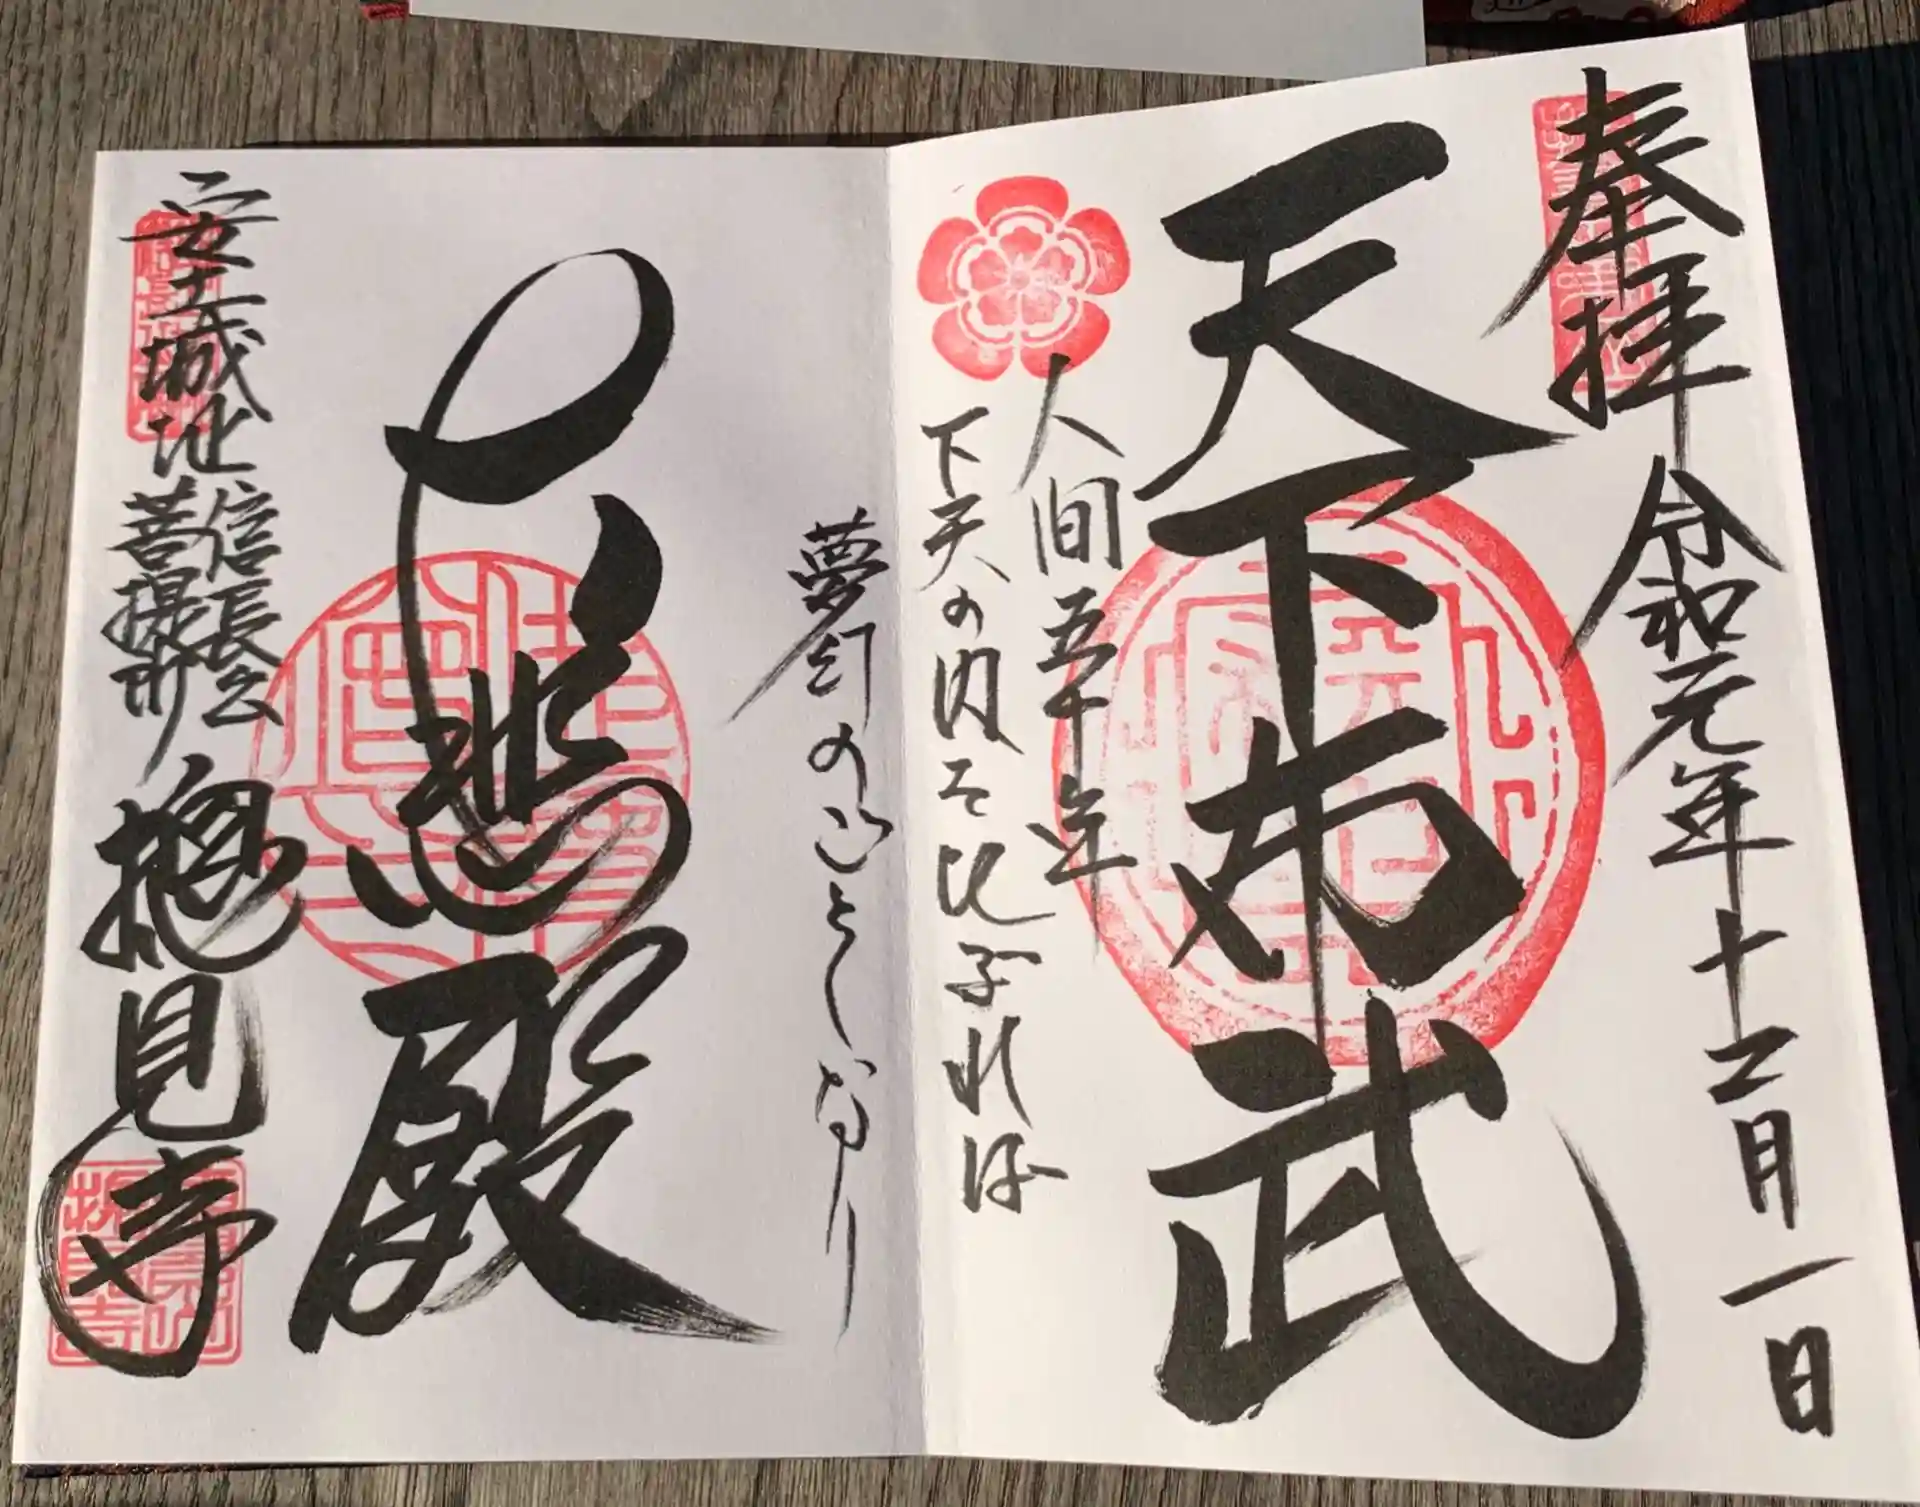 奉拝 令和元年十二月一日
天下布武
人間五十年
下天の内を比ぶれば
夢幻のごとくなり
大悲殿
安土城址
信長公
菩提所
摠見寺